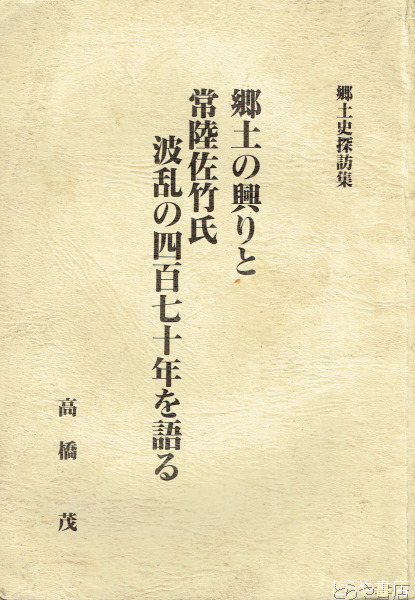 郷土史探訪集
郷土の興りと
常陸佐竹氏
波乱の四百七十年を語る
高橋茂
とらや書店